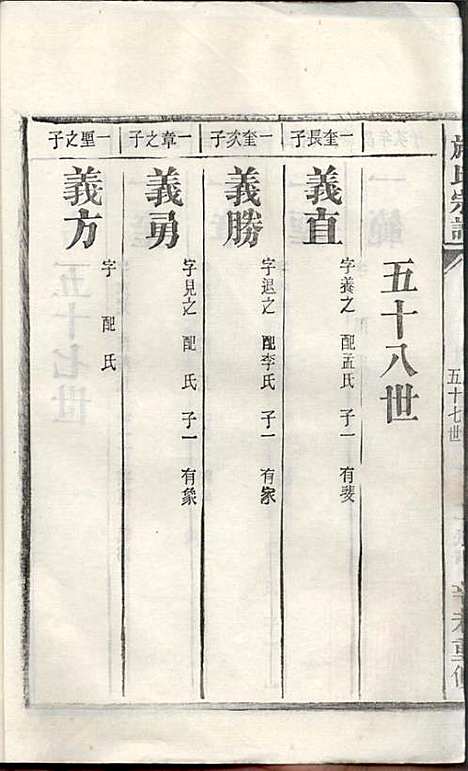 施氏宗譜
五十七世
辛未重修
五十八世
一奎長子
義直
字養之 配孟氏 子一 有斐
一奎次子
義勝
字退之 配李氏 子一 有家
一章之子
義勇
字見之 配 氏 子一 有象
一聖之子
義方
字 配 氏